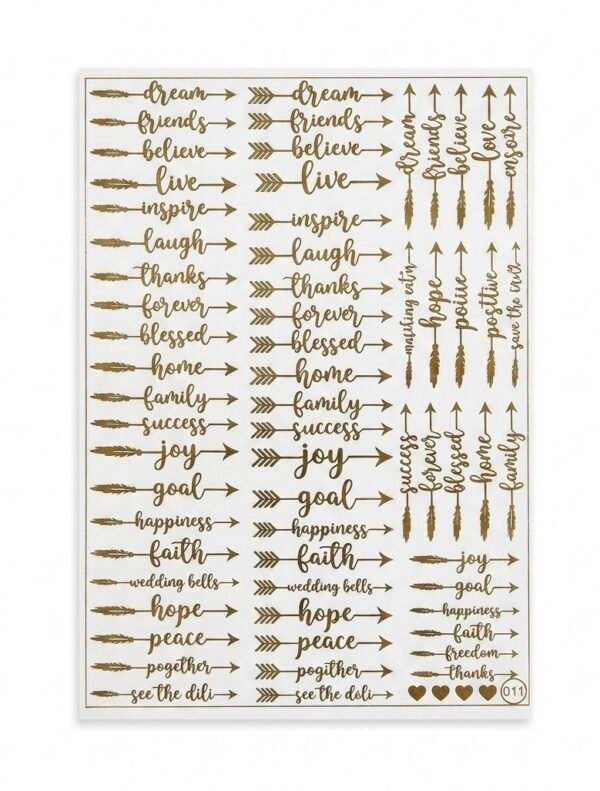 dream
friends
believe
live
inspire
laugh
thanks
forever
blessed
home
family
success
joy
goal
happiness
faith
wedding bells
hope
peace
pogether
see the dili
dream
friends
believe
live
inspire
laugh
thanks
forever
blessed
home
family
success
joy
goal
happiness
faith
wedding bells
hope
peace
pogither
see the doli
dream
friends
believe
love
hope
positive
success
forever
blessed
home
family
joy
goal
happiness
faith
freedom
thanks
011